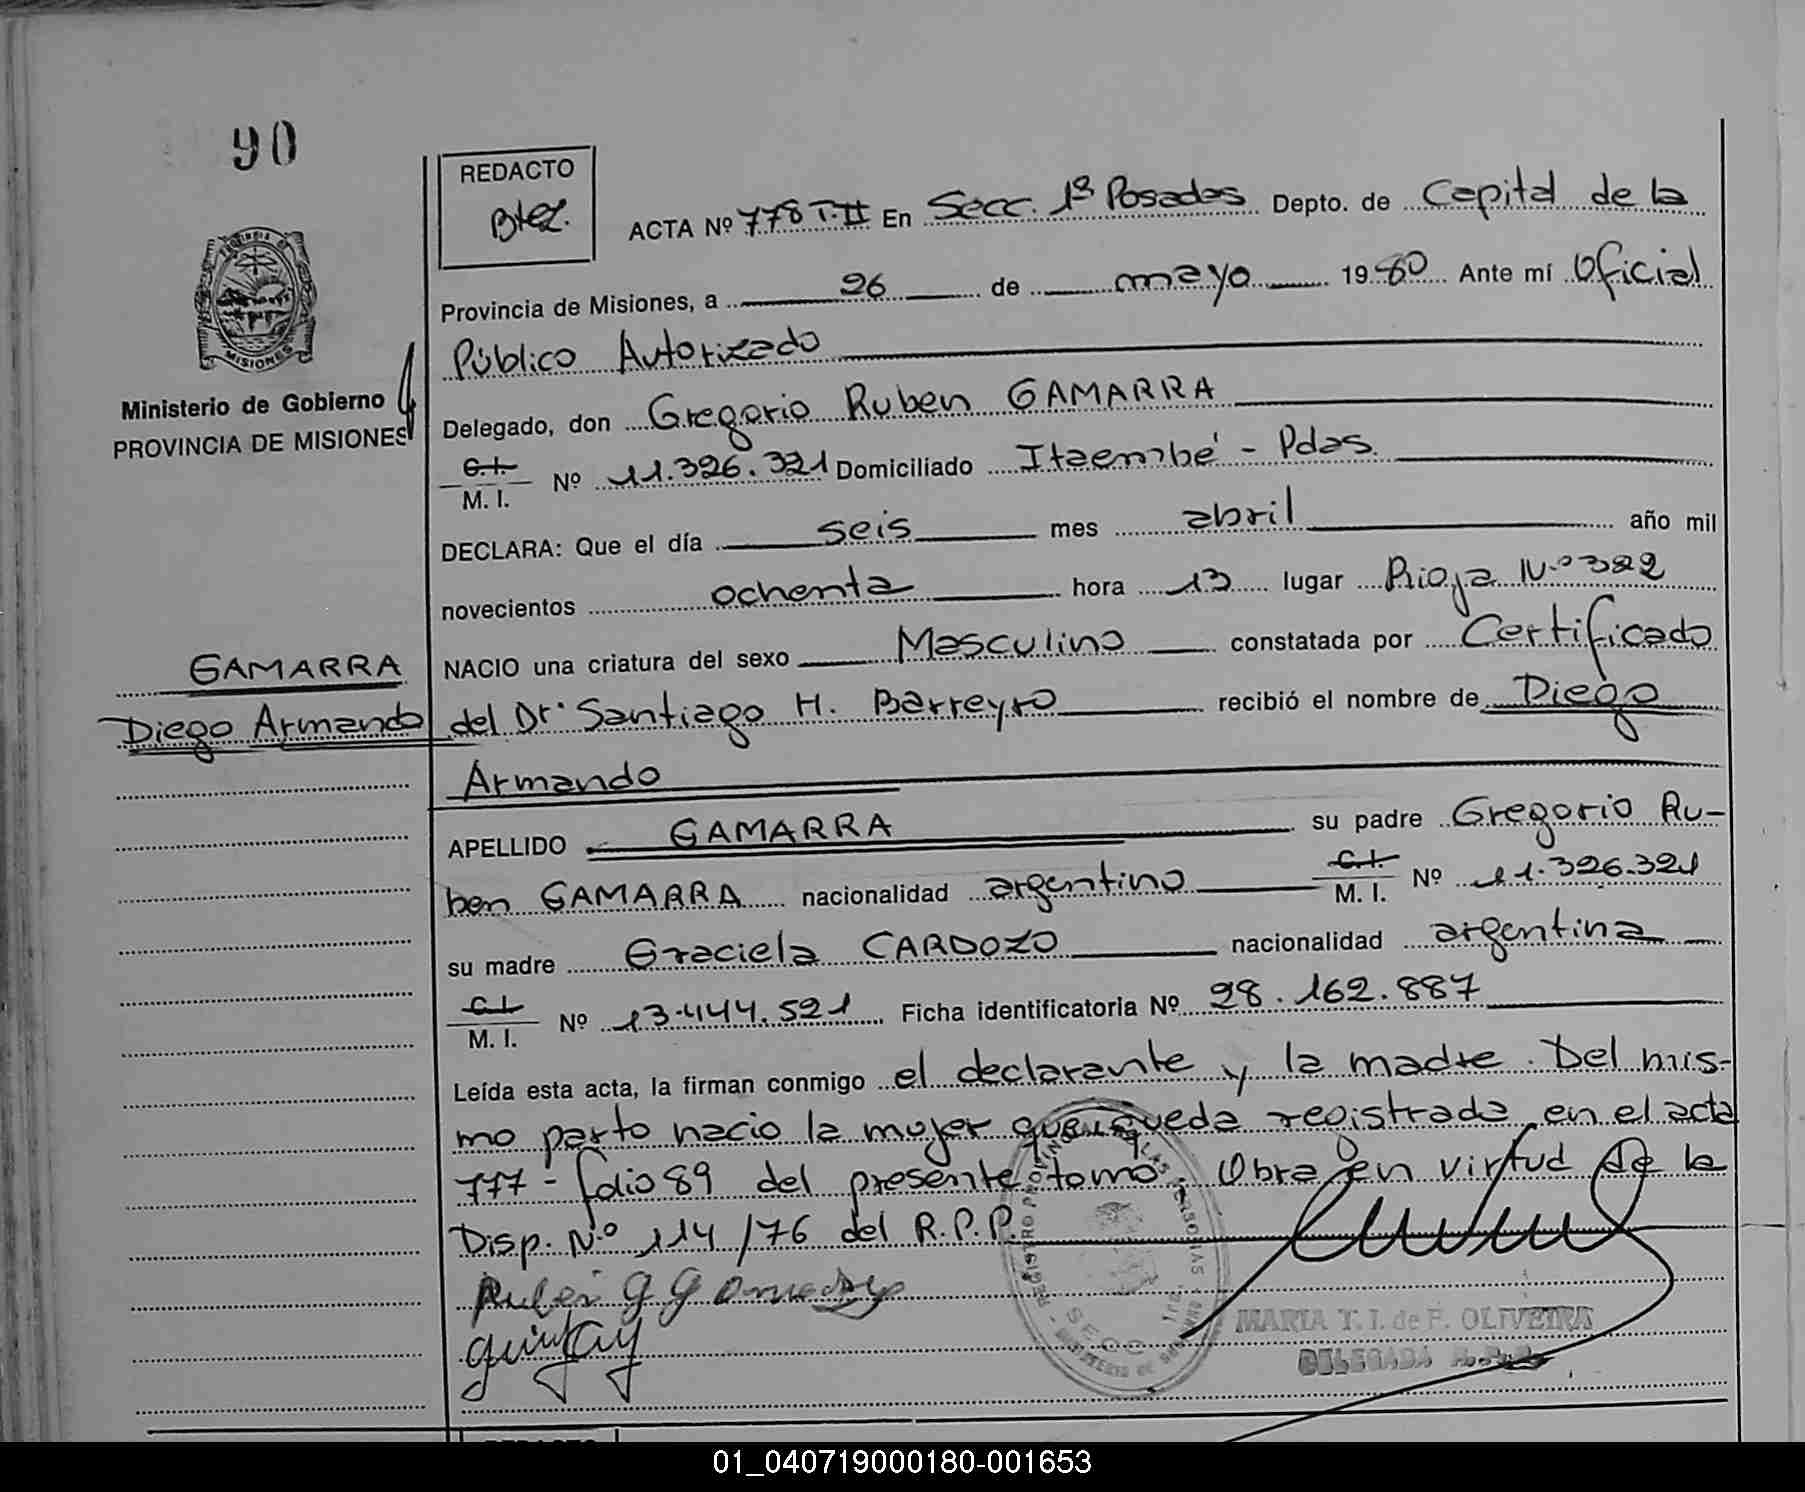 90
REDACTO
Btez.
ACTA Nº 778 T.II En Secc. 1ª Posadas Depto. de Capital de la
Provincia de Misiones, a 26 de mayo 1980 Ante mí Oficial
Público Autorizado
Delegado, don Gregorio Ruben GAMARRA
C.I.
M. I. Nº 11.326.321 Domiciliado Itaembé - Pdas.
DECLARA: Que el día seis mes abril año mil
novecientos ochenta hora 13 lugar Rioja Nº 322
NACIO una criatura del sexo Masculino constatada por Certificado
del Dr. Santiago H. Barreyro recibió el nombre de Diego
Armando
APELLIDO GAMARRA su padre Gregorio Ru-
ben GAMARRA nacionalidad argentino C.I. M. I. Nº 11.326.321
su madre Graciela CARDOZO nacionalidad argentina
C.I.
M. I. Nº 13.444.521 Ficha identificatoria Nº 28.162.887
Leída esta acta, la firman conmigo el declarante y la madre. Del mis-
mo parto nacio la mujer que queda registrada en el acta
777 - folio 89 del presente tomo. Obra en virtud de la
Disp. Nº 114/76 del R.P.P.
MISIONES
Ministerio de Gobierno
PROVINCIA DE MISIONES
GAMARRA
Diego Armando
MARIA T. I. de F. OLIVEIRA
DELEGADA
01_040719000180-001653